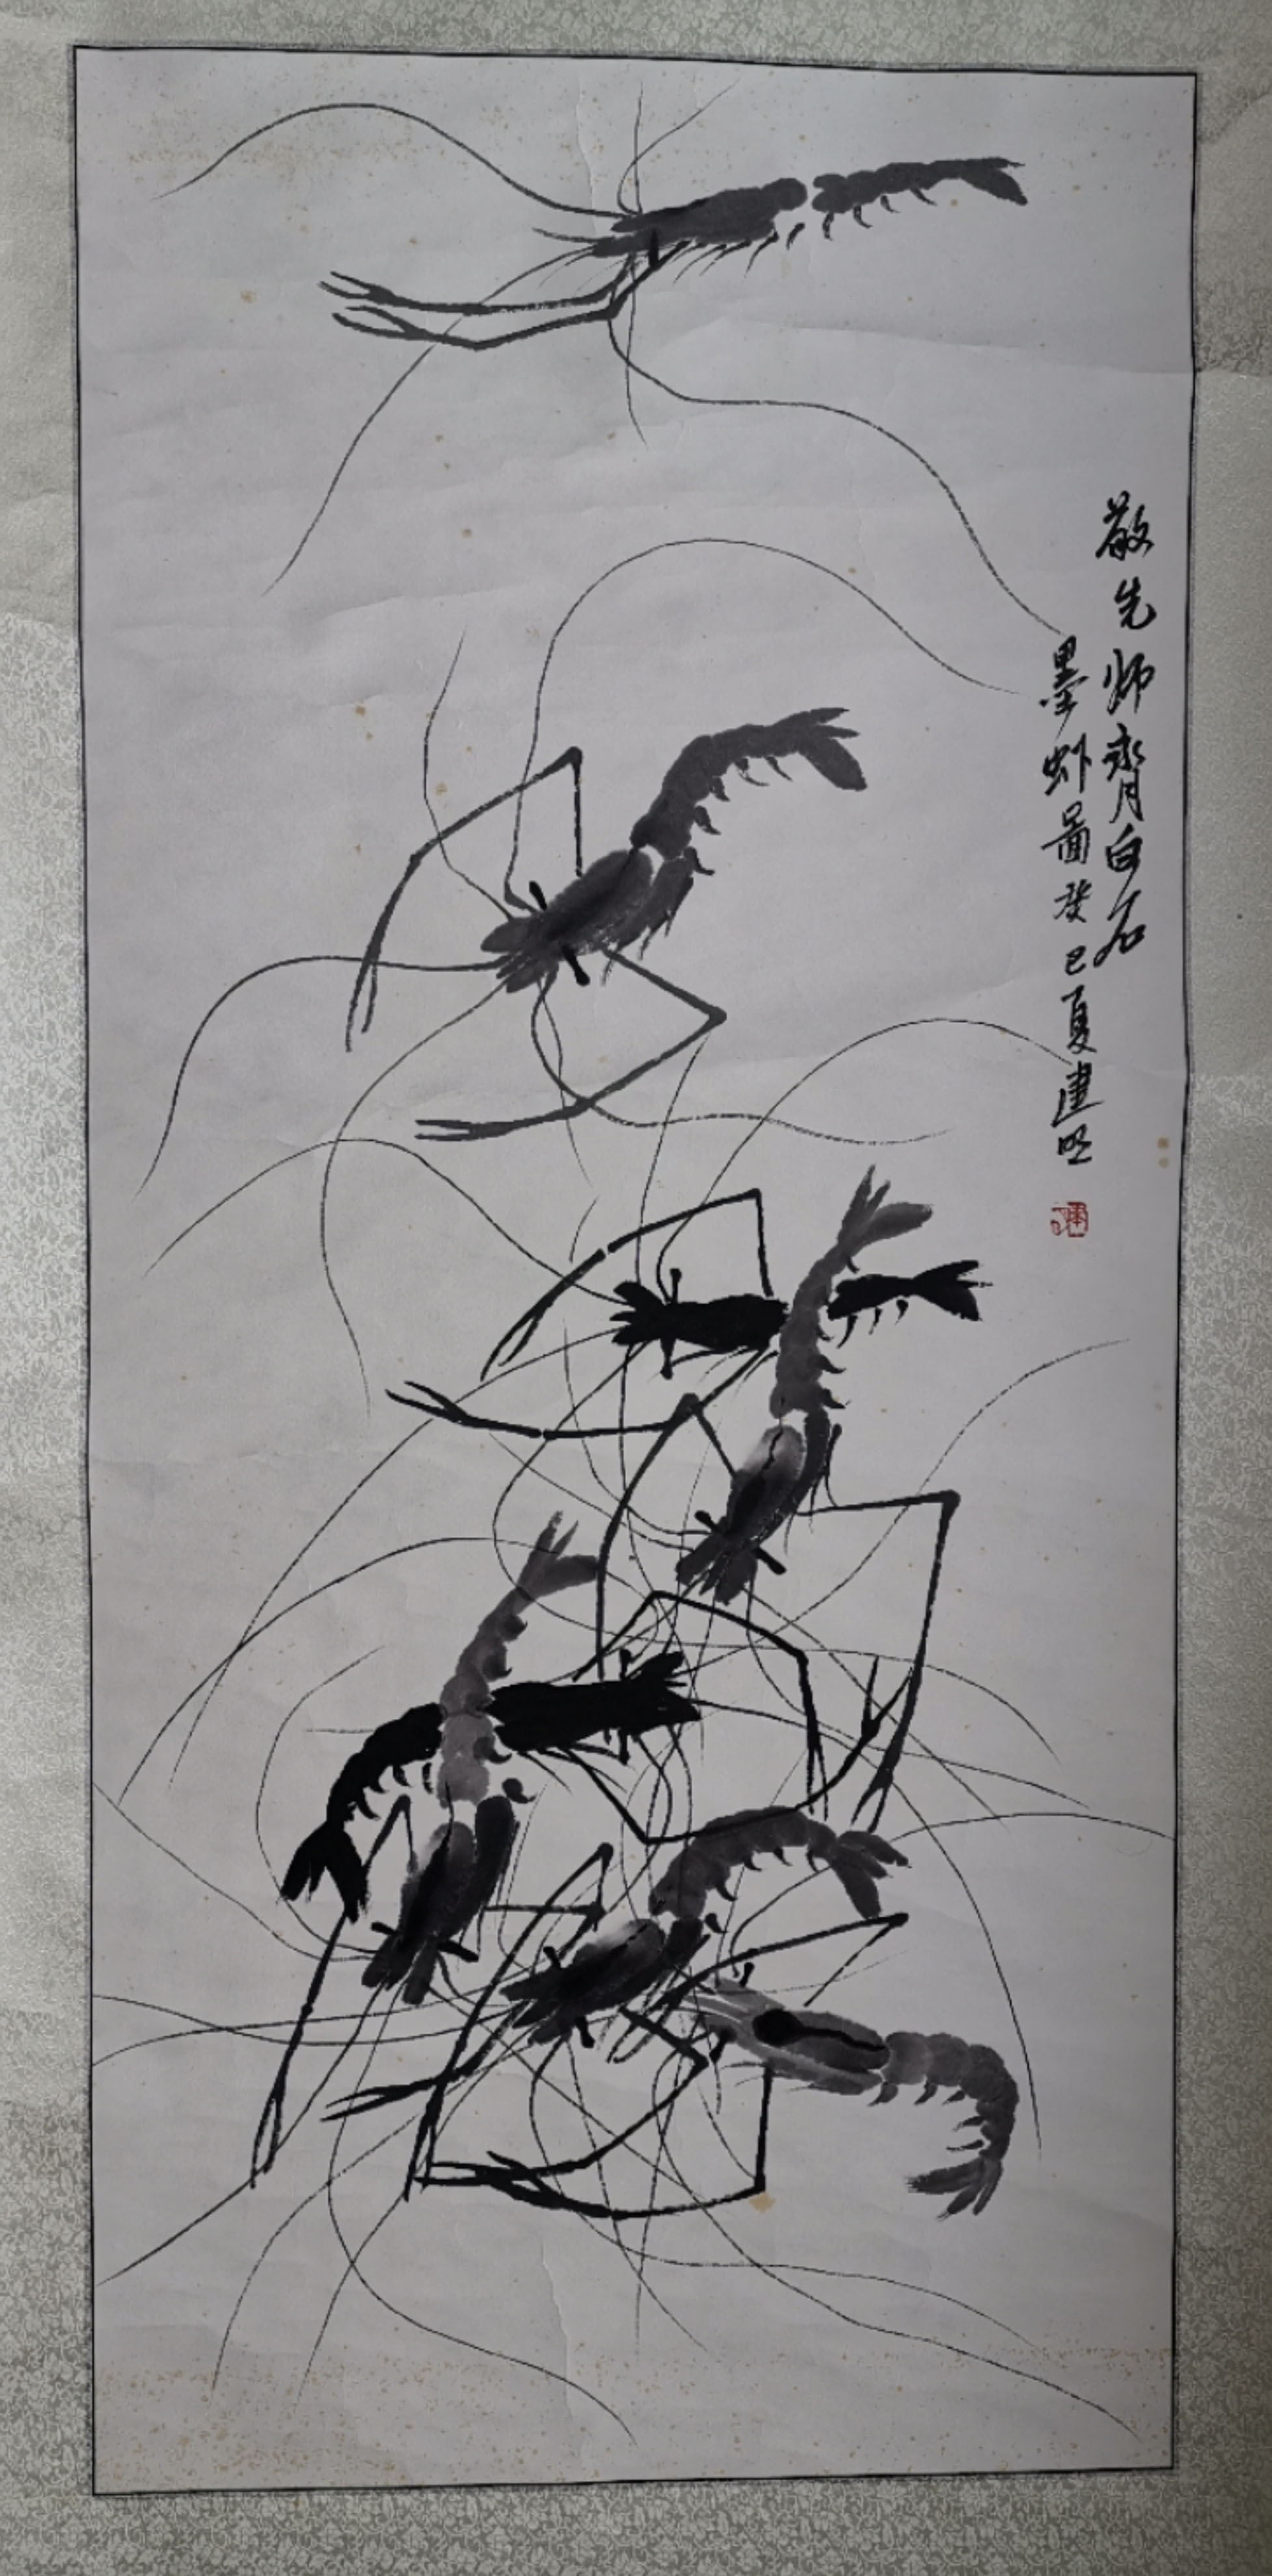 敬先师齐白石
墨虾图癸巳夏建